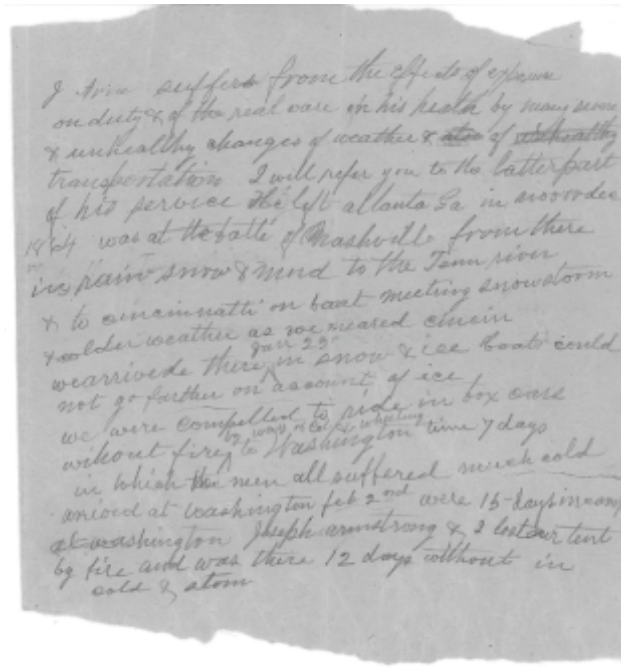 J Arm suffers from the effects of exposure
on duty & of the real care in his health by many severe
& unhealthy changes of weather & of unhealthy
transportation I will refer you to the latter part
of his service He left atlanta Ga in
1864 was at the batle of Nashville from there
in rain snow & mud to the Tenn river
& to cincinnatti on boat meeting snowstorm
& colder weather as we neared cincin
wearrivede there Jan 25 in snow & ice boats could
not go farther on account of ice
we were compelled to ride in box cars
without fire by way of Col & wheeling to Washington time 7 days
in which the men all suffered much cold
arived at washington feb 2nd were 15 days in camp
at washington Joseph armstrong & I lost our tent
by fire and was there 12 days without in
cold & storm